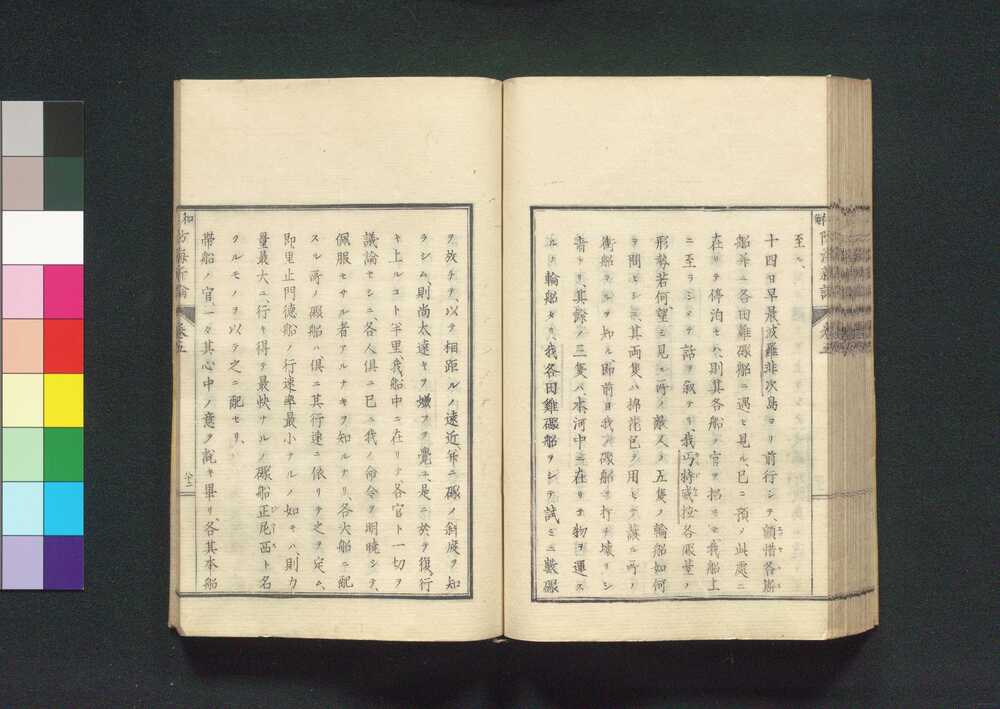 至ル、
十四日早晨波羅非次島ヨリ前行シテ、額惜各勝
船并ニ各田雞礟船ニ遇ヒ見ル、已ニ預メ此處ニ
在リテ停泊セリ、則其各船ノ官ヲ招キ、我船上
ニ至ラシメテ、話ヲ叙テリ、我丐特威拉各限量ノ
形勢若何、望ミ見ル所ノ敵人ノ五隻ノ輪船如何
ヲ問ヒシニ、其両隻ハ棉花包ヲ用ヒテ護ル所ノ
衝船タルヲ知ル、即前日我カ礟船ヲ打チ壊リシ
者ナリ、其餘ノ三隻ハ本河中ニ在リテ物ヲ運ス
ルノ輪船タリ、我各田雞礟船ヲシテ、試ミニ數礟
ヲ放チテ、以テ相距ルノ遠近并ニ礟ノ斜度ヲ知
ラシム、則尚太遠キヲ嫌フヲ覺ユ、是ニ於テ復行
キ上ルコト半里我船中ニ在リテ、各官ト一切ヲ
議論セシニ、各人俱ニ已ニ我ノ命令ヲ明曉シテ、
佩服セサル者アルナキヲ知ルナリ、各大船ニ配
スル所ノ礟船ハ俱ニ其行速ニ依リテ之ヲ定ム、
即里止門德船ノ行速率最小ナルノ如キハ、則力
量最大ニ、行キ得テ最快ナルノ礟船正尼西ト名
クルモノヲ以テ之ニ配セリ、
帶船ノ官、一々其心中ノ意ヲ說キ畢リ、各其本船
防海新論
卷五